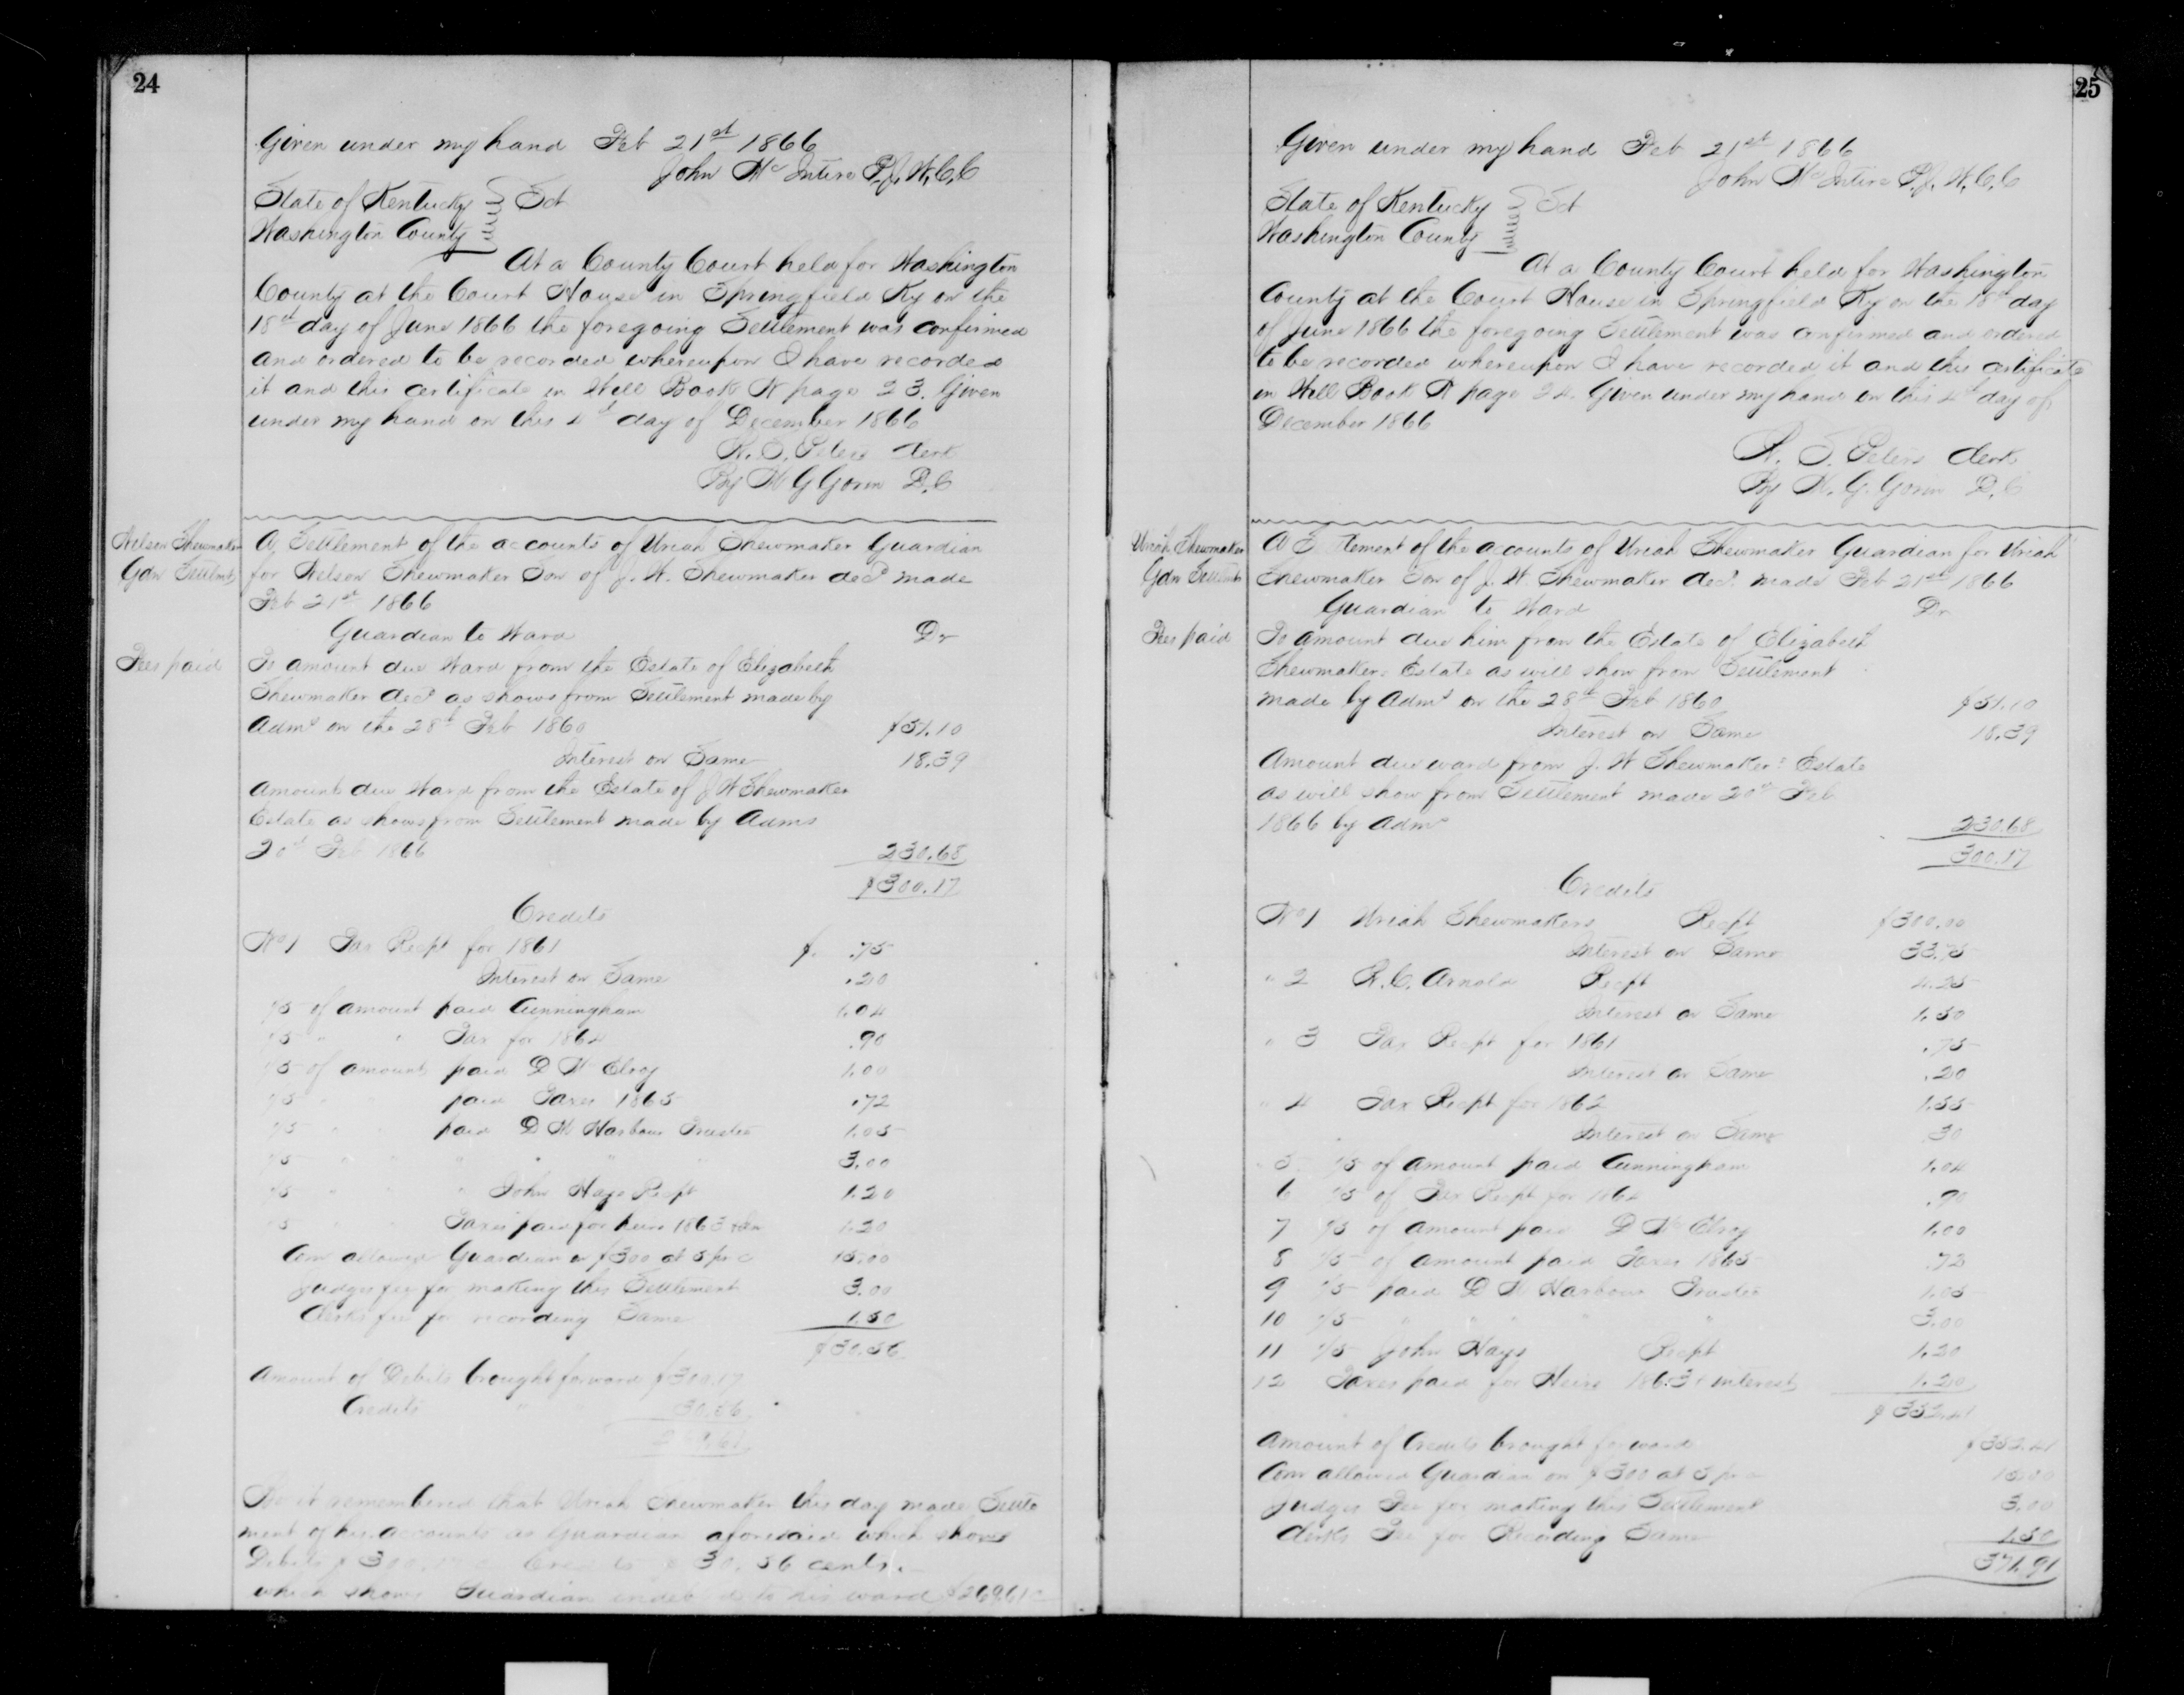 24
Given under my hand Feb 21st 1866
John McIntire P.J.W.C.C
State of Kentucky } Sct
Washington County
At a County Court held for Washington
County at the Court House in Springfield Ky on the
18th day of June 1866 the foregoing Settlement was confirmed
and ordered to be recorded whereupon I have recorded
it and this certificate in Will Book page 23. Given
under my hand on this 4th day of December 1866
W. S. Peters Clerk
By W G Gorin D.C
Nelson Shewmaker
Gdn Settlmt
A Settlement of the accounts of Uriah Shewmaker Guardian
for Nelson Shewmaker Son of J. W. Shewmaker decd made
Feb 21st 1866
Guardian to Ward Dr
Fees paid
To amount due Ward from the Estate of Elizabeth
Shewmaker decd as shows from Settlement made by
Admr on the 28th Feb 1860 $51.10
Interest on Same 18.39
Amount due Ward from the Estate of J W Shewmaker
Estate as shows from Settlement made by Adms
20th Feb 1866 230.68
$300.17
Credits
No 1 Tax Recpt for 1861 $ .75
Interest on Same .20
1/5 of amount paid Cunningham 1.04
1/5 " " Tax for 1864 .90
1/5 of amount paid D McElroy 1.00
1/5 " " paid Taxes 1865 .72
1/5 " " paid D W Harbour Trustee 1.05
1/5 " " " " " " 3.00
1/5 " " " John Hays Recpt 1.20
1/5 " " Taxes paid for heirs 1863 & Int 1.20
Com allowed Guardian on $300 at 5 pr c 15.00
Judges fee for making this Settlement 3.00
Clerks fee for recording Same 1.50
$30.56
Amount of Debits brought forward $300.17
Credits " " 30.56
269.61
Be it remembered that Uriah Shewmaker this day made Settle
ment of his accounts as Guardian aforesaid which shows
Debits $300.17 Credits $30.56 cents.
which shows Guardian indebted to his ward $269.61 c
25
Given under my hand Feb 21st 1866
John McIntire P.J.W.C.C
State of Kentucky } Sct
Washington County
At a County Court held for Washington
County at the Court House in Springfield Ky on the 18th day
of June 1866 the foregoing Settlement was confirmed and ordered
to be recorded whereupon I have recorded it and this certificate
in Will Book page 24. Given under my hand on this 4th day of
December 1866
W. S. Peters Clerk
By W. G. Gorin D.C
Uriah Shewmaker
Gdn Settlmt
A Settlement of the accounts of Uriah Shewmaker Guardian for Uriah
Shewmaker Son of J. W. Shewmaker decd. made Feb 21st 1866
Guardian to Ward Dr
Fees paid
To amount due him from the Estate of Elizabeth
Shewmakers Estate as will show from Settlement
made by Admr on the 28th Feb 1860 $51.10
Interest on Same 18.39
Amount due ward from J. W Shewmakers Estate
as will show from Settlement made 20th Feb
1866 by Admr 230.68
300.17
Credits
No 1 Uriah Shewmakers Recpt $300.00
Interest on Same 33.75
" 2 R. C. Arnold Recpt 4.25
Interest on Same 1.50
" 3 Tax Recpt for 1861 .75
Interest on Same .20
" 4 Tax Recpt for 1862 1.55
Interest on Same .30
5 1/5 of amount paid Cunningham 1.04
6 1/5 of Tax Recpt for 1864 .90
7 1/5 of amount paid D McElroy 1.00
8 1/5 of amount paid Taxes 1865 .72
9 1/5 paid D W Harbour Trustee 1.05
10 1/5 " " " " 3.00
11 1/5 John Hays Recpt 1.20
12 Taxes paid for Heirs 1863 & interest 1.20
$352.41
Amount of Credits brought forward $352.41
Com allowed Guardian on $300 at 5 pr c 15.00
Judges Fee for making this Settlement 3.00
Clerks Fee for Recording Same 1.50
371.91